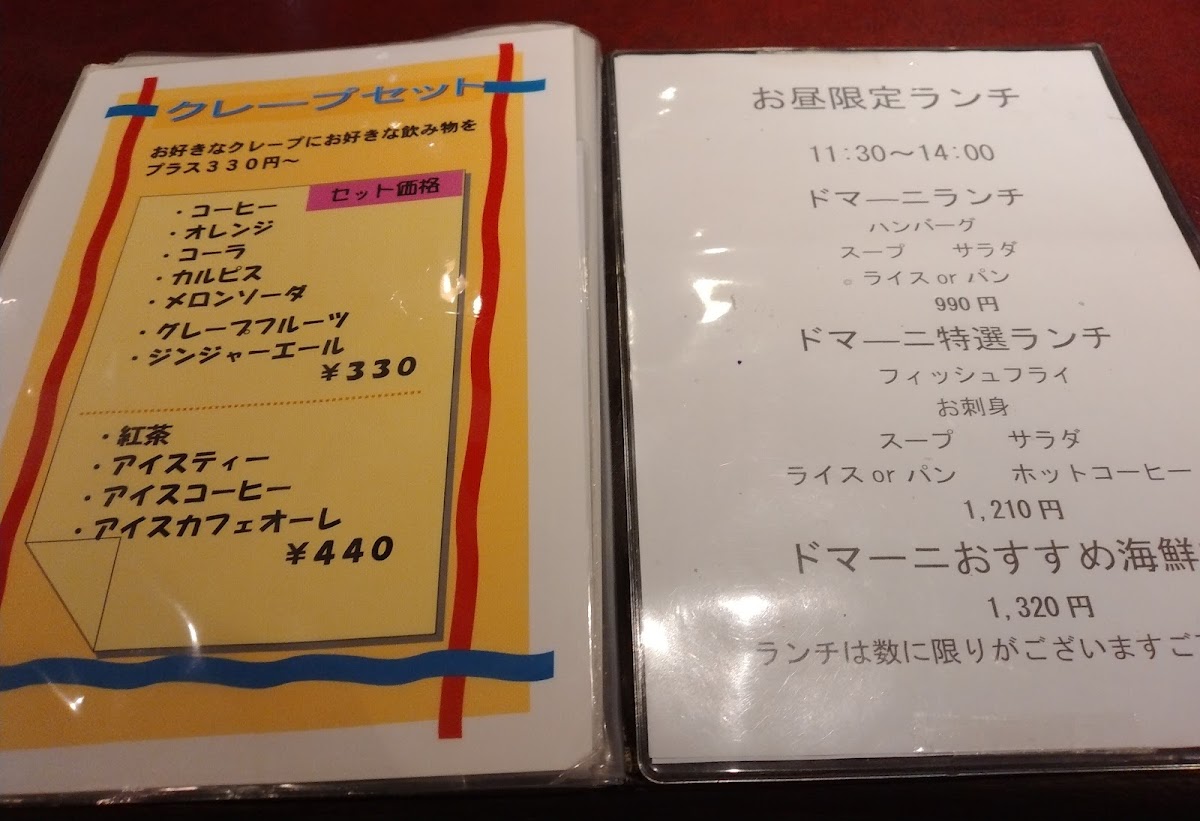 クレープセット
お好きなクレープにお好きな飲み物を
プラス３３０円～
セット価格
・コーヒー
・オレンジ
・コーラ
・カルピス
・メロンソーダ
・グレープフルーツ
・ジンジャーエール
￥３３０
・紅茶
・アイスティー
・アイスコーヒー
・アイスカフェオーレ
￥４４０
お昼限定ランチ
11:30～14:00
ドマーニランチ
ハンバーグ
スープ　サラダ
ライス or パン
990 円
ドマーニ特選ランチ
フィッシュフライ
お刺身
スープ　サラダ
ライス or パン　ホットコーヒー
1,210 円
ドマーニおすすめ海鮮
1,320 円
ランチは数に限りがございますご